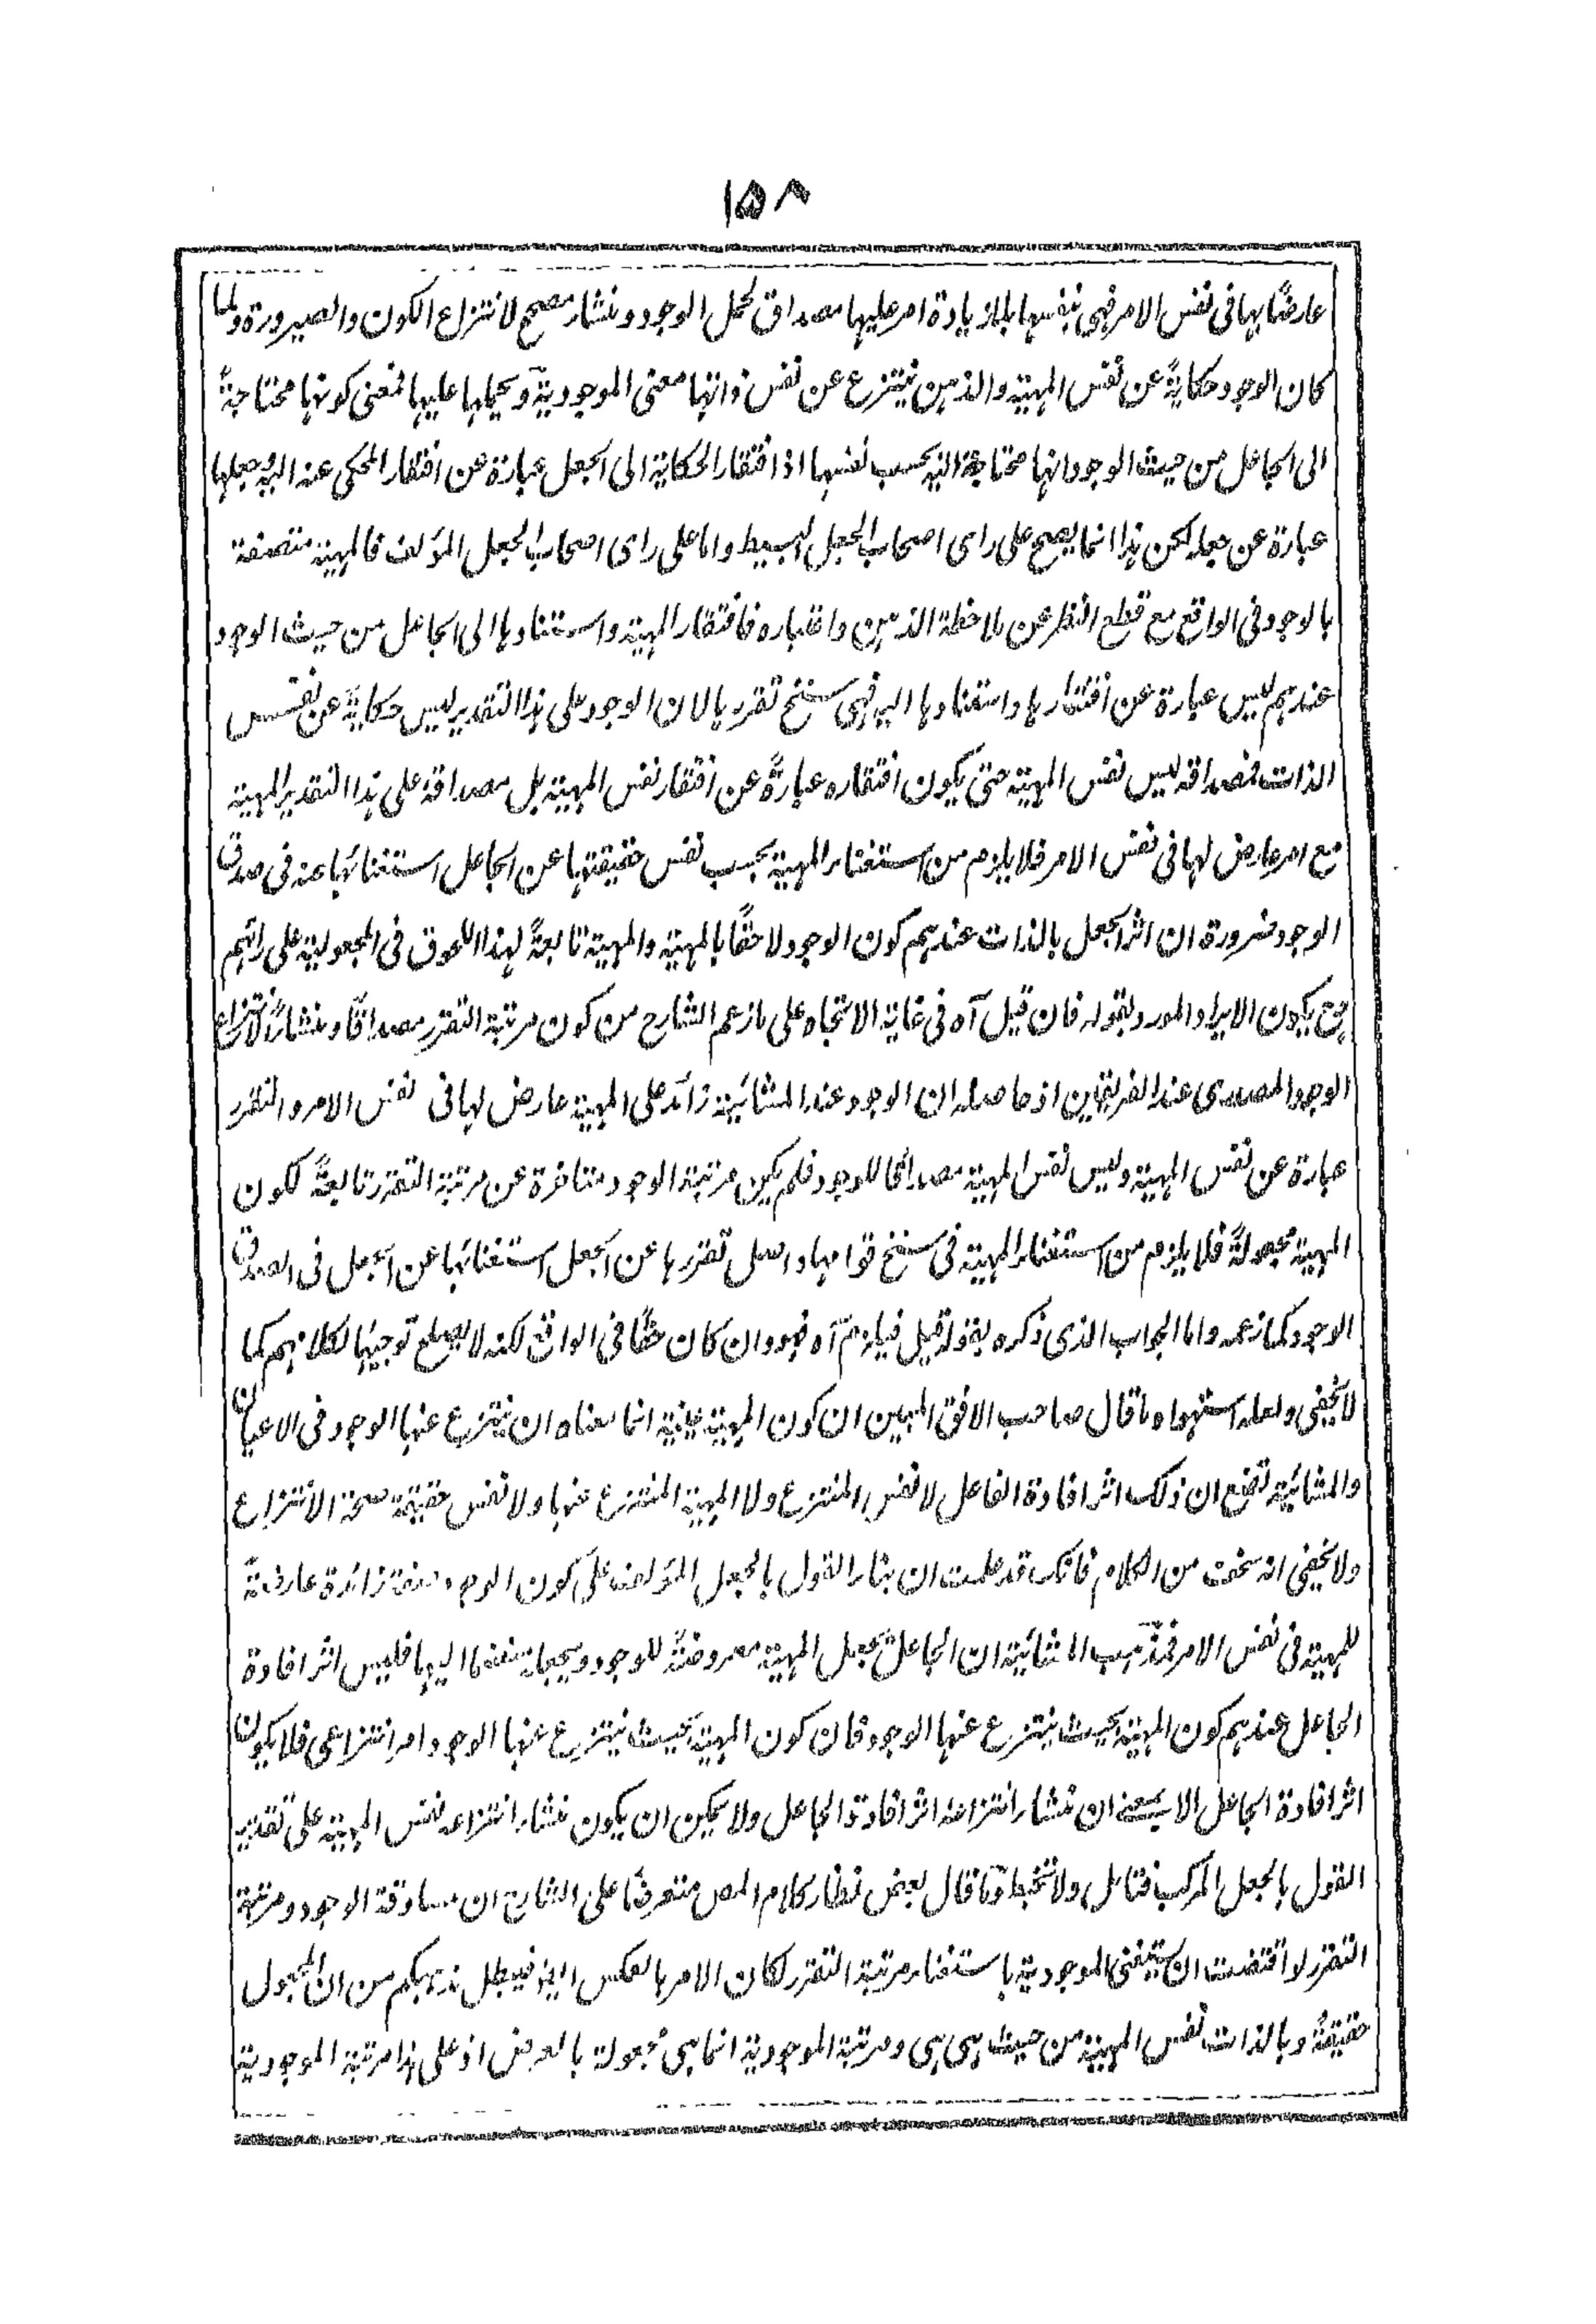 ١٥٨
عارضًا بها فى نفس الامر فهى بنفسها بلا زيادة امر عليها مصداق لحمل الوجود ومنشاء مصحح لانتزاع الكون والصيرورة ولما
كان الوجود حكايةً عن نفس المهية والذهن ينتزع عن نفس ذاتها معنى الموجودية ويحملها عليها فمعنى كونها محتاجةً
الى الجاعل من حيث الوجود انها محتاجة اليه بحسب نفسها اذ افتقار الحكاية الى الجعل عبارة عن افتقار المحكى عنه اليه وجعلها
عبارة عن جعله لكن هذا انما يصح على راى اصحاب الجعل البسيط واما على راى اصحاب الجعل المؤلف فالمهية متصفة
بالوجود فى الواقع مع قطع النظر عن ملاحظة الذهن واعتباره فافتقار المهية واستنادها الى الجاعل من حيث الوجود
عندهم ليس عبارة عن افتقارها واستنادها اليه فهى سنخ تقررها لان الوجود على هذا التقدير ليس حكايةً عن نفس
الذات فمصداقه ليس نفس المهية حتى يكون افتقاره عبارةً عن افتقار نفس المهية بل مصداقه على هذا التقدير المهية
مع امر عارض لها فى نفس الامر فلا يلزم من استغناء المهية بحسب نفس حقيقتها عن الجاعل استغنائها عنه فى صدق
الوجود ضرورة ان اثر الجعل بالذات عندهم كون الوجود لاحقًا بالمهية والمهية تابعةً لهذا اللحوق فى المجعولية على رائهم
فح يكون الايراد المورد بقوله فان قيل آه فى غاية الاتجاه على ما زعم الشارح من كون مرتبة التقرر مصداقًا ومنشاءً لانتزاع
الوجود المصدرى عند الفريقين اذ حاصله ان الوجود عند المشائية زائد على المهية عارض لها فى نفس الامر والتقرر
عبارة عن نفس المهية وليس نفس المهية مصداقا للوجود فلم يكن مرتبة الوجود متاخرة عن مرتبة التقرر تابعةً لكون
المهية مجعولةً فلا يلزم من استغناء المهية فى سنخ قوامها واصل تقررها عن الجعل استغنائها عن الجعل فى الصدق
الوجود كما زعمه واما الجواب الذى ذكره بقوله قيل فيلزم آه فهو وان كان حقًا فى الواقع لكنه لا يصلح توجيهًا لكلامهم كما
لا يخفى ولعله استهواه ما قال صاحب الافق المبين ان كون المهية عينية انما معناه ان ينتزع عنها الوجود فى الاعيان
والمشائية تضع ان ذلك اثر افادة الفاعل لا نفس المنتزع ولا المهية المنتزع عنها ولا نفس حقيقة صحة الانتزاع
ولا يخفى انه سخف من الكلام فانك قد علمت ان بناء القول بالجعل المؤلف على كون الوجود صفة زائدة عارضةً
للمهية فى نفس الامر فمذهب المشائية ان الجاعل يجعل المهية معروضةً للوجود ويجعله منضما اليها فليس اثر افادة
الجاعل عندهم كون المهية بحيث ينتزع عنها الوجود فان كون المهية بحيث ينتزع عنها الوجود امر انتزاعى فلا يكون
اثر افادة الجاعل الا بمعنى ان منشاء انتزاعه اثر افادة الجاعل ولا يمكن ان يكون منشاء انتزاعه نفس المهية على تقدير
القول بالجعل المركب فتامل ولا تخبط وما قال بعض نظار كلام المص متعرضًا على الشارح ان مساوقة الوجود ومرتبة
التقرر لو اقتضت ان يستغنى الموجودية باستغناء مرتبة التقرر لكان الامر بالعكس ايضا فيبطل مذهبكم من ان المجعول
حقيقةً وبالذات نفس المهية من حيث هى هى ومرتبة الموجودية انما هى مجعولة بالعرض اذ على هذا مرتبة الموجودية